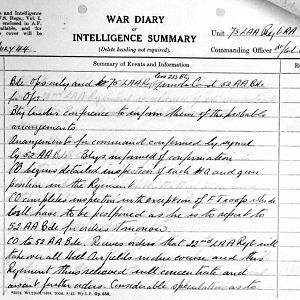 and Intelligence
F.S. Regs., Vol. I.
contained in A.F.
available, and for
the cover will be
JULY 44
WAR DIARY
OR
INTELLIGENCE SUMMARY
(Delete heading not required).
Unit 75 LAA Regt RA
Commanding Officer
Summary of Events and Information
less 223 Bty
Bde Ops only and 75 LAA Regt under Cmd 52 AA Bde
for Ops.
Bty Leaders conference to inform them of the probable
arrangements
Arrangements for command confirmed by signal
by 52 AA Bde. Btys informed of confirmation
CO begins detailed inspection of each HQ and gun
position in the Regiment
CO completes inspection with exception of F Troop which
will have to be postponed as he is to report to
52 AA Bde for orders tomorrow
CO to 52 AA Bde. Receives orders that 22nd LAA Regt will
take over all Hill Airfields in due course and this
Regiment thus relieved will concentrate and
await further orders. Considerable speculation as to